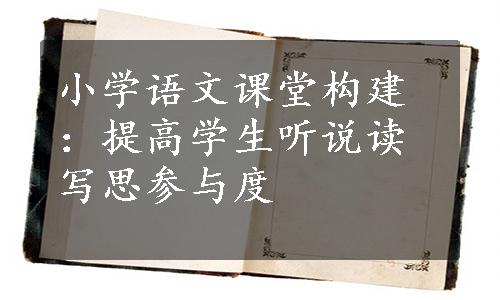 小学语文课堂构建
：提高学生听说读
写思参与度